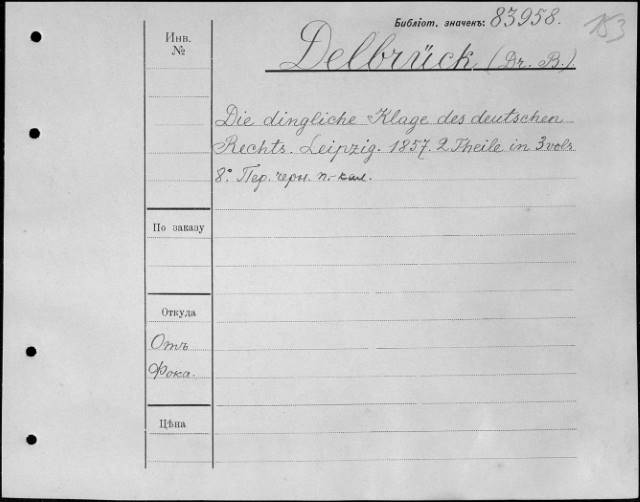 Библіот. значекъ: 83958.
153
Инв.
№
Delbrück, (Dr. B.)
Die dingliche Klage des deutschen
Rechts. Leipzig. 1857. 2 Theile in 3 vols
8°. Пер. черн. п.-кал.
По заказу
Откуда
Отъ
Фока.
Цѣна